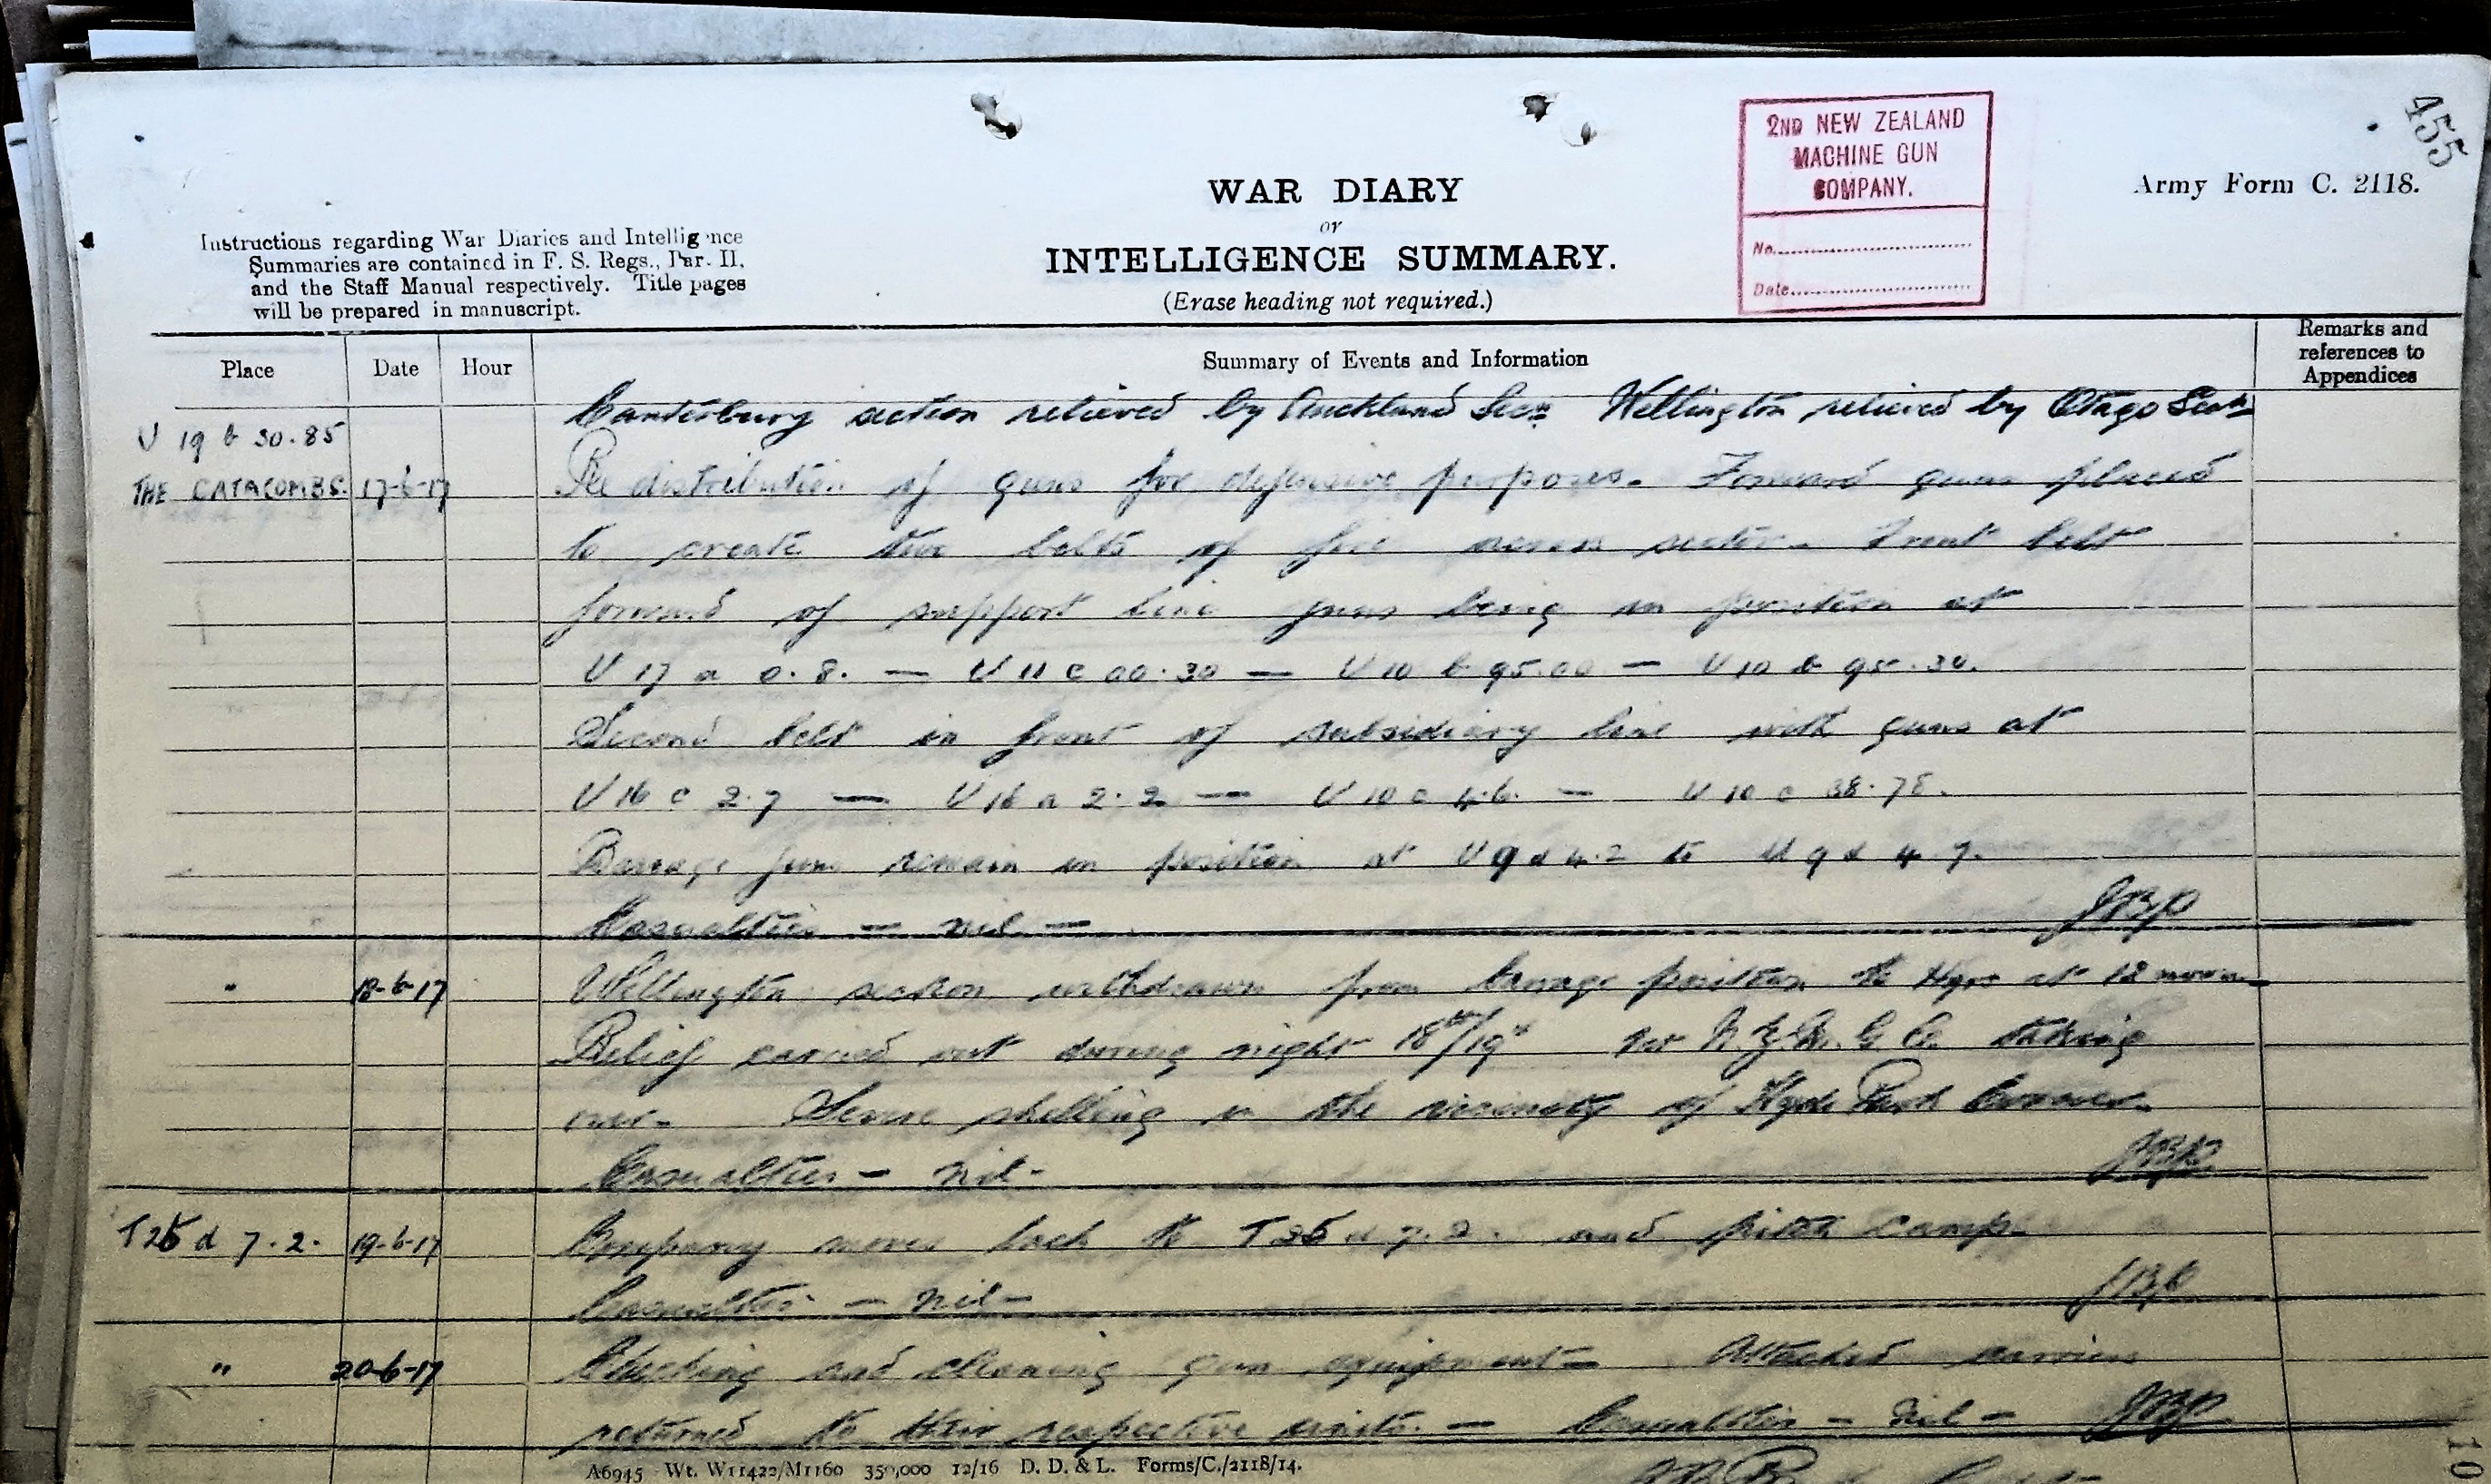 455
2ND NEW ZEALAND
MACHINE GUN
COMPANY.
No.
Date
Army Form C. 2118.
WAR DIARY
or
INTELLIGENCE SUMMARY.
(Erase heading not required.)
Instructions regarding War Diaries and Intelligence
Summaries are contained in F. S. Regs., Par. II,
and the Staff Manual respectively. Title pages
will be prepared in manuscript.
Place Date Hour Summary of Events and Information Remarks and references to Appendices
Canterbury section relieved by Auckland Secn Wellington relieved by Otago Secn
U 19 b 30.85
THE CATACOMBS. 17-6-17 Re distribution of guns for defensive purposes. Forward guns placed
to create two belts of fire across sector. Front belt
forward of support line guns being in position at
U 17 a 0.8. — U 11 c 00.30 — U 10 b 95.00 — U 10 b 95.30.
Second belt in front of subsidiary line with guns at
U 16 c 2.7 — U 16 a 2.2 — U 10 c 4.6. — U 10 c 38.78.
Barrage guns remain in position at U 9 d 4.2 to U 9 d 4.7.
Casualties — nil —
" 18-6-17 Wellington section withdrawn from barrage position to Hqrs at 12 noon
Relief carried out during night 18th/19th N.Z.M.G. Co. taking
over. Severe shelling in the vicinity of Hyde Park Corner.
Casualties — nil -
T 26 d 7.2. 19-6-17 Company moves back to T 26 d 7.2. and pitch camp.
Casualties — nil —
" 20-6-17 Checking and cleaning gun equipment — Attached carriers
returned to their respective units. — Casualties — Nil —
A6945 Wt. W11422/M1160 350,000 12/16 D. D. & L. Forms/C./2118/14.